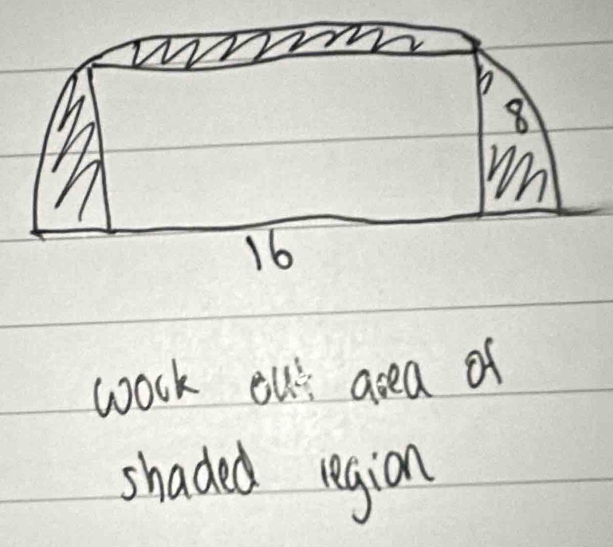 8
16
work out area of
shaded region